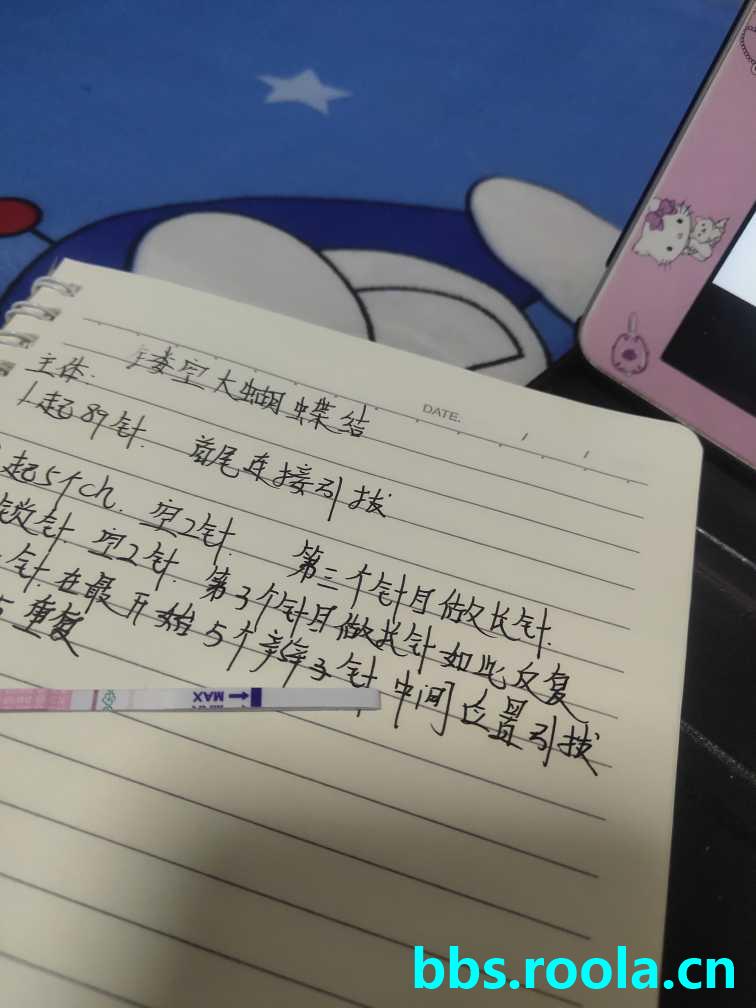 镂空大蝴蝶结
DATE.
主体:
1起89针. 首尾连接引拔
起5个ch. 空2针. 第三个针目做长针.
锁针 空2针. 第3个针目做长针如此反复
针在最开始5个辫子针中间位置引拔
重复
MAX
bbs.roola.cn